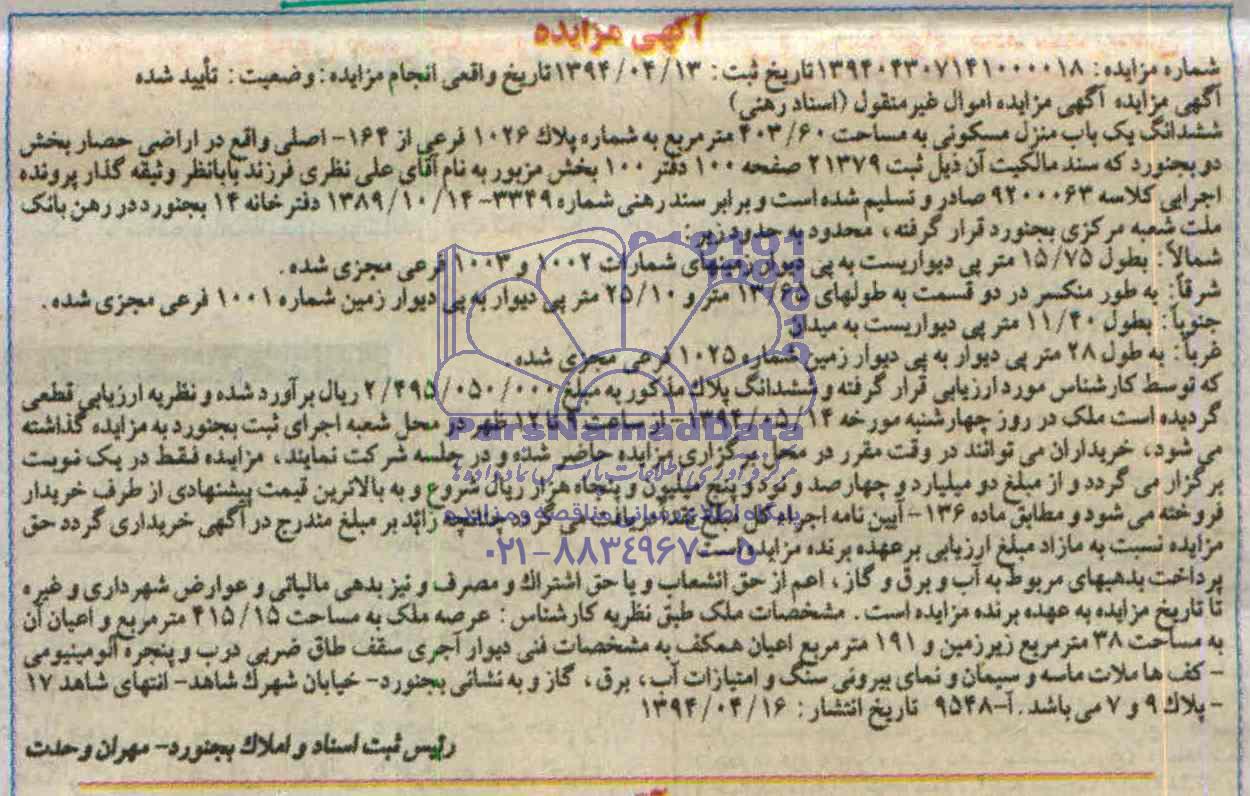 آگهی مزایده
شماره مزایده: ۱۳۹۴۰۴۳۰۷۱۴۱۰۰۰۰۱۸ تاریخ ثبت: ۱۳۹۴/۰۴/۱۳ تاریخ واقعی انجام مزایده: وضعیت: تأیید شده
آگهی مزایده آگهی مزایده اموال غیرمنقول (اسناد رهنی)
ششدانگ یک باب منزل مسکونی به مساحت ۴۰۳/۶۰ مترمربع به شماره پلاک ۱۰۲۶ فرعی از ۱۶۴- اصلی واقع در اراضی حصار بخش
دو بجنورد که سند مالکیت آن ذیل ثبت ۲۱۳۷۹ صفحه ۱۰۰ دفتر ۱۰۰ بخش مزبور به نام آقای علی نظری فرزند بابانظر وثیقه گذار پرونده
اجرایی کلاسه ۹۲۰۰۰۶۳ صادر و تسلیم شده است و برابر سند رهنی شماره ۳۳۴۹- ۱۳۸۹/۱۰/۱۴ دفترخانه ۱۴ بجنورد در رهن بانک
ملت شعبه مرکزی بجنورد قرار گرفته، محدود به حدود زیر:
شمالاً: بطول ۱۵/۷۵ متر پی دیواریست به پی دیوار زمینهای شمارات ۱۰۰۲ و ۱۰۰۳ فرعی مجزی شده.
شرقاً: به طور منکسر در دو قسمت به طولهای ۱۳/۶۵ متر و ۲۵/۱۰ متر پی دیوار به پی دیوار زمین شماره ۱۰۰۱ فرعی مجزی شده.
جنوباً: بطول ۱۱/۴۰ متر پی دیواریست به میدان
غرباً: به طول ۲۸ متر پی دیوار به پی دیوار زمین شماره ۱۰۲۵ فرعی مجزی شده
که توسط کارشناس مورد ارزیابی قرار گرفته و ششدانگ پلاک مذکور به مبلغ ۲/۴۹۵/۰۵۰/۰۰۰ ریال برآورد شده و نظریه ارزیابی قطعی
گردیده است ملک در روز چهارشنبه مورخه ۱۳۹۴/۰۵/۱۴ از ساعت ۹ تا ۱۲ ظهر در محل شعبه اجرای ثبت بجنورد به مزایده گذاشته
می شود، خریداران می توانند در وقت مقرر در محل برگزاری مزایده حاضر شده و در جلسه شرکت نمایند، مزایده فقط در یک نوبت
برگزار می گردد و از مبلغ دو میلیارد و چهارصد و نود و پنج میلیون و پنجاه هزار ریال شروع و به بالاترین قیمت پیشنهادی از طرف خریدار
فروخته می شود و مطابق ماده ۱۳۶- آیین نامه اجرا، کل مبلغ نقداً دریافت می گردد چنانچه زائد بر مبلغ مندرج در آگهی خریداری گردد حق
مزایده نسبت به مازاد مبلغ ارزیابی برعهده برنده مزایده است.
پرداخت بدهیهای مربوط به آب و برق و گاز، اعم از حق انشعاب و یا حق اشتراک و مصرف و نیز بدهی مالیاتی و عوارض شهرداری و غیره
تا تاریخ مزایده به عهده برنده مزایده است. مشخصات ملک طبق نظریه کارشناس: عرصه ملک به مساحت ۴۱۵/۱۵ مترمربع و اعیان آن
به مساحت ۳۸ مترمربع زیرزمین و ۱۹۱ مترمربع اعیان همکف به مشخصات فنی دیوار آجری سقف طاق ضربی درب و پنجره آلومینیومی
- کف ها ملات ماسه و سیمان و نمای بیرونی سنگ و امتیازات آب، برق، گاز و به نشانی بجنورد- خیابان شهرک شاهد- انتهای شاهد ۱۷
- پلاک ۹ و ۷ می باشد. آ-۹۵۴۸ تاریخ انتشار: ۱۳۹۴/۰۴/۱۶
رئیس ثبت اسناد و املاک بجنورد- مهران وحدت
ParsNamadData
مرکز فرآوری اطلاعات پارس نماد داده ها
پایگاه اطلاع رسانی مناقصه و مزایده
۰۲۱-۸۸۳۴۹۶۷۰-۵